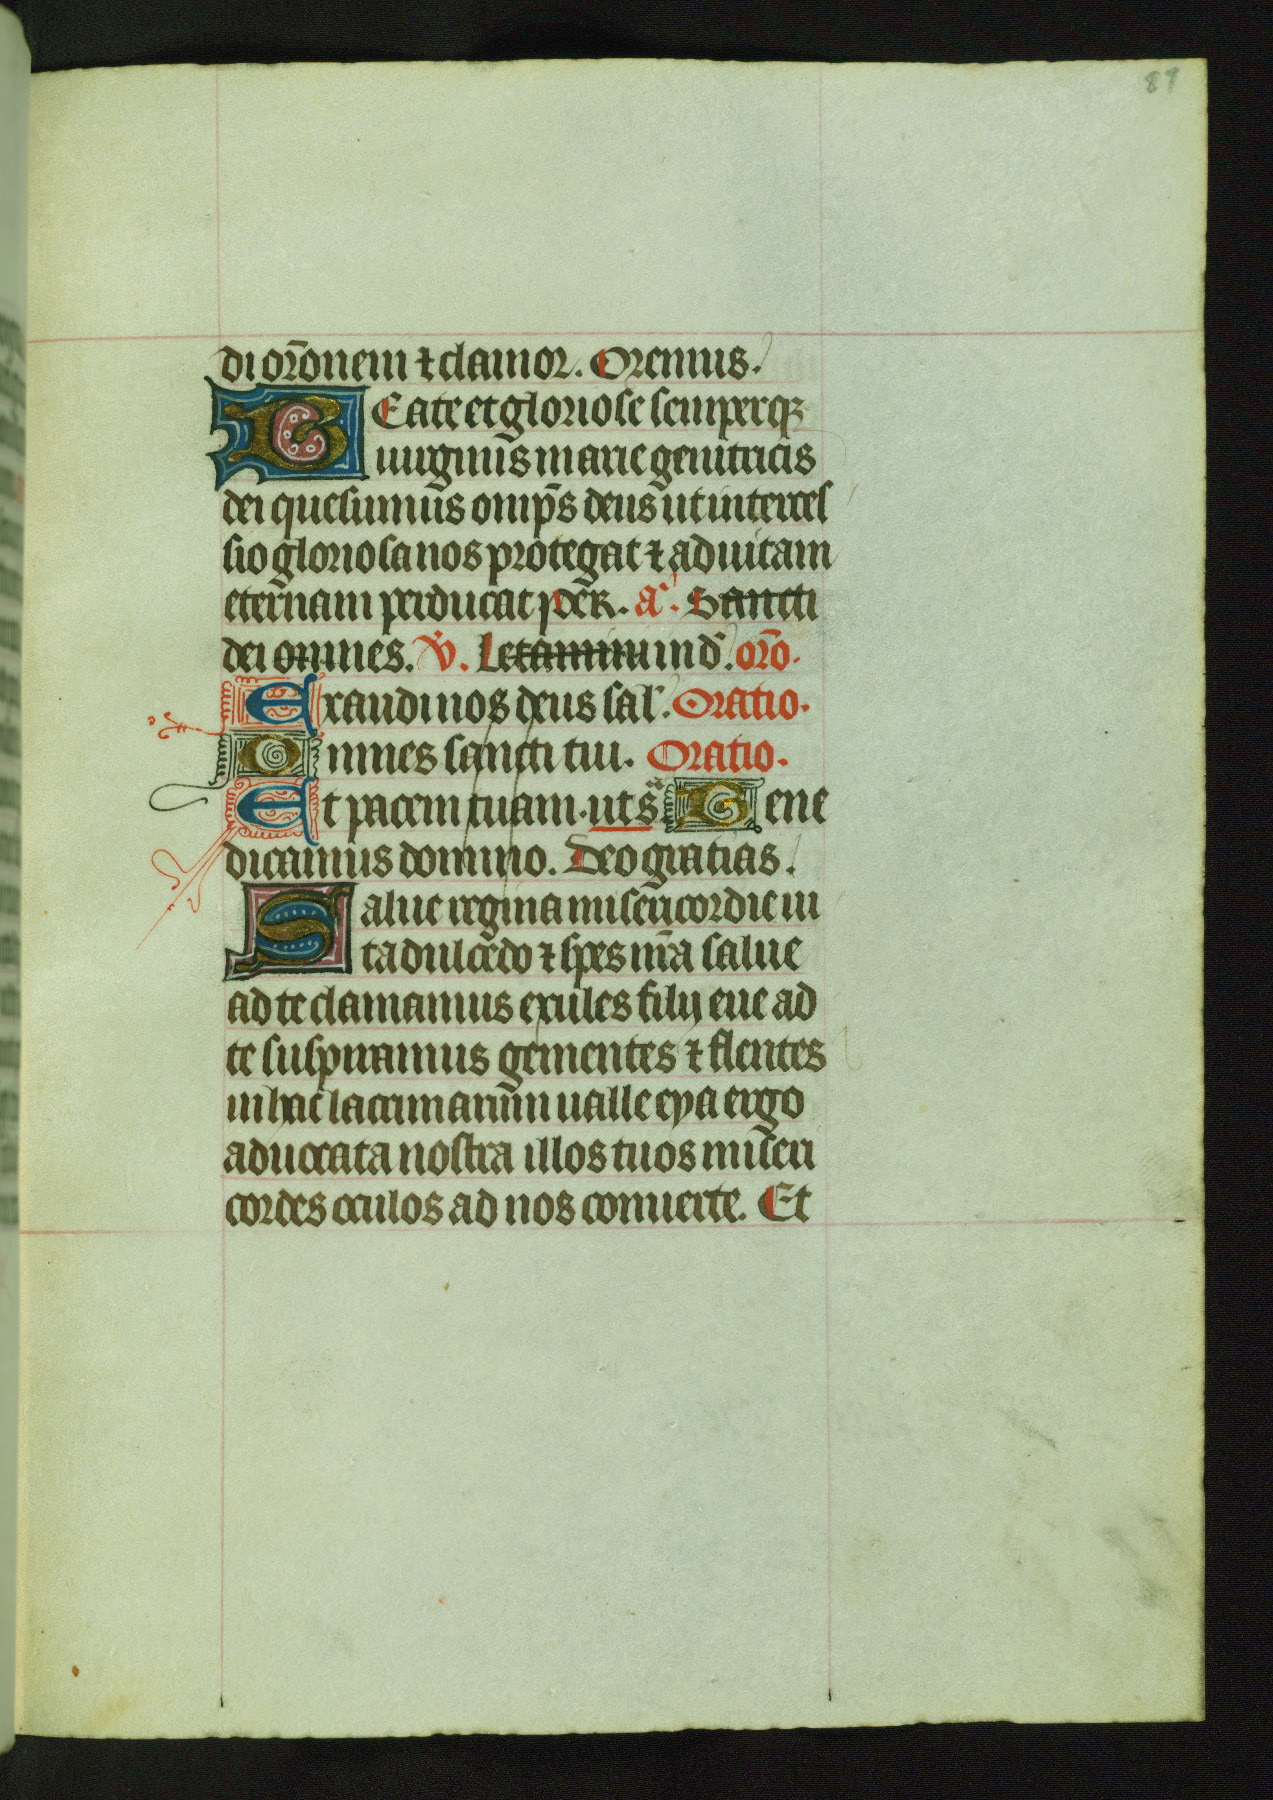 89
di or̄onem ⁊ clamor. Oremus.
BEate et gloriose semperq̢
uirginis marie genitricis
dei quesumus omp̄s deus ut interces
sio gloriosa nos protegat ⁊ ad uitam
eternam perducat p̱ eꝝ. a͛. Sancti
dei omnes. V̇. Letamini in d̄. or̄o.
Exaudi nos deus sal̛. Oratio.
Omnes sancti tui. Oratio.
Et pacem tuam. ut s̄. Bene
dicamus domino. Deo gratias.
Salue regina misericordie ui
ta dulcedo ⁊ spes nr̄a salue
ad te clamamus exules filij eue ad
te suspiramus gementes ⁊ flentes
in hac lacrimarum ualle eya ergo
aduocata nostra illos tuos miseri
cordes oculos ad nos conuerte. Et